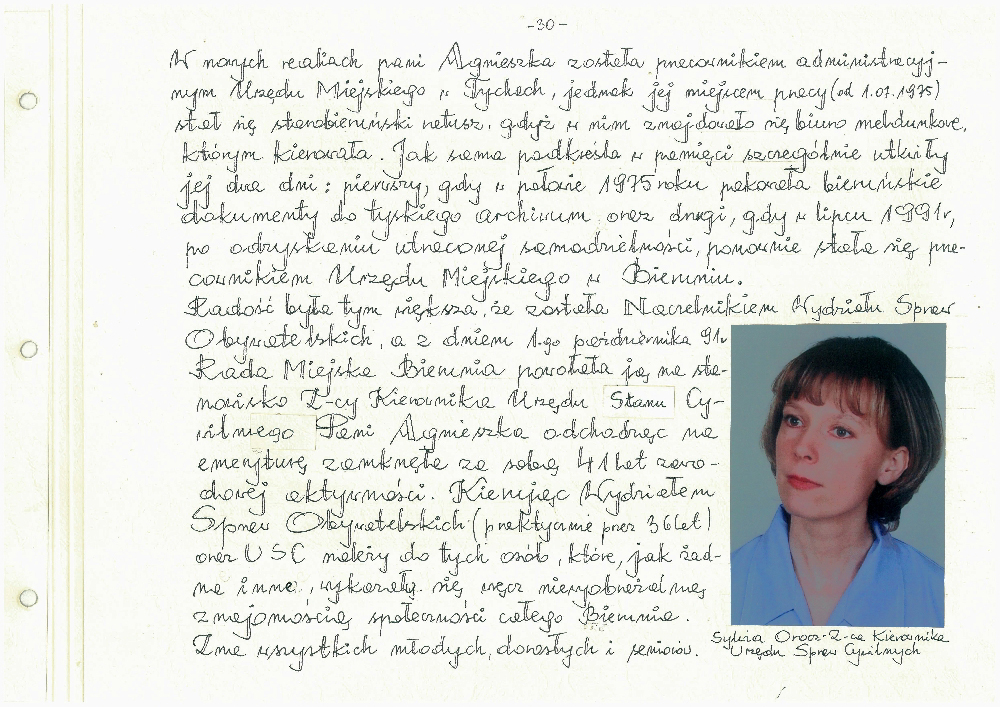 -30-
W nowych realiach pani Agnieszka została pracownikiem administracyj-
nym Urzędu Miejskiego w Tychach, jednak jej miejscem pracy (od 1.07.1975)
stał się starobieruński ratusz, gdyż w nim znajdowało się biuro meldunkowe,
którym kierowała. Jak sama podkreśla w pamięci szczególnie utkwiły
jej dwa dni: pierwszy, gdy w połowie 1975 roku pakowała bieruńskie
dokumenty do tyskiego archiwum oraz drugi, gdy w lipcu 1991r,
po odzyskaniu utraconej samodzielności, ponownie stała się pra-
cownikiem Urzędu Miejskiego w Bieruniu.
Radość była tym większa, że została Naczelnikiem Wydziału Spraw
Obywatelskich, a z dniem 1-go października 91r
Rada Miejska Bierunia powołała ją na sta-
nowisko Z-cy Kierownika Urzędu Stanu Cy-
wilnego Pani Agnieszka odchodząc na
emeryturę zamknęła za sobą 41 lat zawo-
dowej aktywności. Kierując Wydziałem
Spraw Obywatelskich (praktycznie przez 36 lat)
oraz USC należy do tych osób, które, jak żad-
na inna, wykazały się wręcz niewyobrażalną
znajomością społeczności całego Bierunia.
Zna wszystkich młodych, dorosłych i seniorów.
Sylwia Orocz-Z-ca Kierownika
Urzędu Spraw Cywilnych